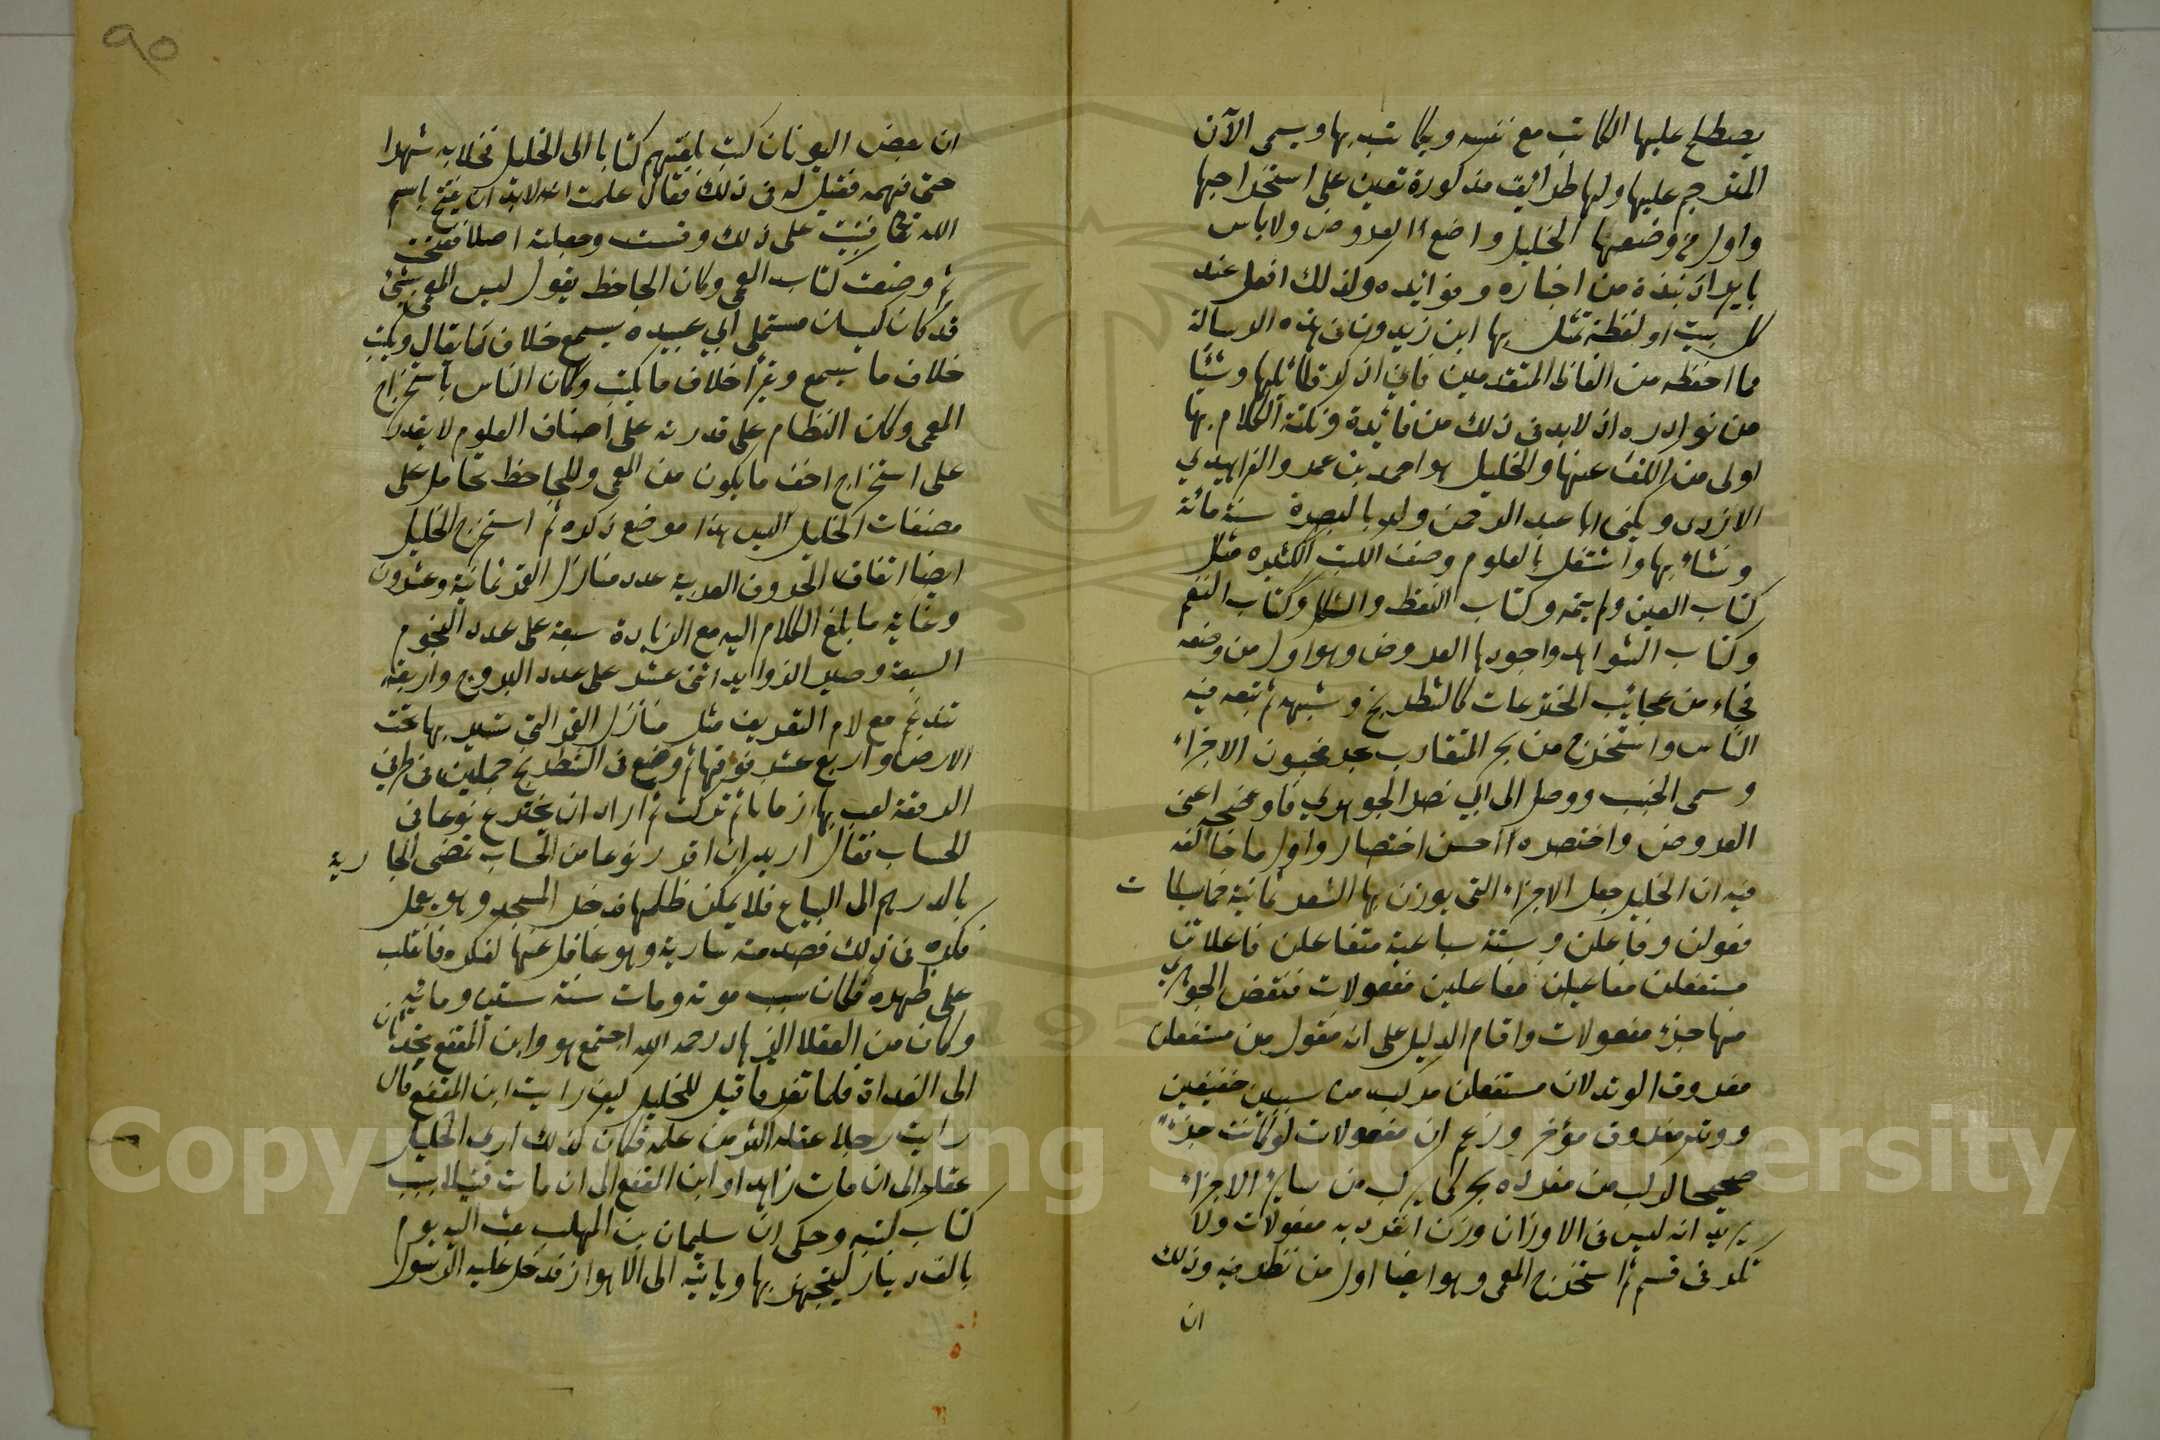 يصطلح عليها الكاتب مع نفسه ويكاتب بها ويسمى الآن
المترجم عليها ولها طرائق مذكورة تعين على استخراجها
واول من وضعها الخليل واضع العروض ولا باس
بايراد نبذة من اخباره وفوائده وكذلك افعل عند
كل بيت او لفظة تمثل بها ابن زيدون في هذه الرسالة
مما احفظه من الفاظ المتقدمين فاني اذكر قائليها وشيئا
من نوادره اذ لابد في ذلك من فائدة ونكتة الكلام بها
اولى من الكف عنها والخليل هو احمد بن عمرو الفراهيدي
الازدى ويكنى ابا عبد الرحمن ولد بالبصرة سنة مائة
ونشاء بها واشتغل بالعلوم وصنف الكتب الكثيره مثل
كتاب العين ولم يتمه وكتاب النقط والشكل وكتاب النغم
وكتاب الشواهد واجودها العروض وهو اول من وضعه
فجاء من عجائب المخترعات كالشطرنج وشبهه ثم تبعه فيه
الناس واستخرج من بحر المتقارب بحر مخبون الاجزاء
وسمى الخبب ووصل الى ابي نصر الجوهري فاوضح اعنى
العروض واختصره احسن اختصار واول ما خالفه
فيه ان الخليل جعل الاجزاء التى يوزن بها الشعر ثمانية خماسيا ت
فعولن وفاعلن وستة سباعية متفاعلن فاعلاتن
مستفعلن مفاعيلن مفاعلين مفعولات فنقض الجوهري
منها جزء مفعولات واقام الدليل على انه منقول من مستفعلن
مفروق الوتد لان مستفعلن مركب من سببين خفيفين
ووتد مفروق مؤخر وزعم ان مفعولات لو كانت جزءا
صحيحا لركب من مفرده بحر كما يركب من سائر الاجزاء
يريد انه ليس فى الاوزان وزن انفرد به مفعولات ولا
تكرر فى قسم ثم استخرج المعمى وهو ايضا اول من نظر فيه وذلك
ان
٩٥
ان بعض اليونان كتب بلغتهم كتابا الى الخليل فخلا به شهرا
حتى فهمه فقيل له فى ذلك فقال علمت انه لابد ان يفتتح باسم
الله تعالى فبنيت على ذلك وقست وجعلته اصلا ففتحت
ثم وضعت كتاب المعمى وكان الجاحظ يقول ليس المعمى بشئ
قد كان كيسان مستملى ابي عبيده يسمع خلاف ما يقال ويكتب
خلاف ما يسمع ويقرا خلاف ما يكتب وكان الناس باستخراج
المعمى وكان النظام على قدرته على اصناف العلوم لا يقدر
على استخراج اخف ما يكون من المعمى وللجاحظ تحامل على
مصنفات الخليل ليس هذا موضع ذكره ثم استخرج الخليل
ايضا اتفاق الحروف العربية عدد منازل القمر ثمانية وعشرون
وغاية ما بلغ الكلام اليه مع الزيادة سبعة على عدد النجوم
السبعة وصير الزوايد اثنى عشر على عدد البروج واربعة
تندغم مع لام التعريف مثل منازل القمر التى تستر بها تحت
الارض واربع عشر فوقها ثم وضع فى الشطرنج جملين فى طرفي
الرقعة لعب بها زمانا ثم تركت ثم اراد ان يخترع نوعا فى
الحساب فقال اريد ان اقرر نوعا من الحساب تمضى الجارية
بالدرهم الى البياع فلا يمكن ظلمها فدخل المسجد وهو يعمل
فكره فى ذلك فصدمته سارية وهو غافل عنها لفكره فانقلب
على ظهره فكان سبب موته ومات سنة ستين ومائه
وكان من العقلا الزهاد رحمه الله اجتمع هو وابن المقفع يتحدثان
الى الغداة فلما تفرقا قيل للخليل كيف رايت ابن المقفع قال
رايت رجلا عقله اكثر من علمه فكان كذلك ادى الخليل
عقله الى ان مات زاهدا وابن المقفع الى ان مات قتيلا بسبب
كتاب كتبه وحكى ان سليمان بن المهلب بعث اليه يوم
بالف دينار ليتجهز بها وياتيه الى الاهواز فدخل عليه الرسول
Copyright © King Saud University